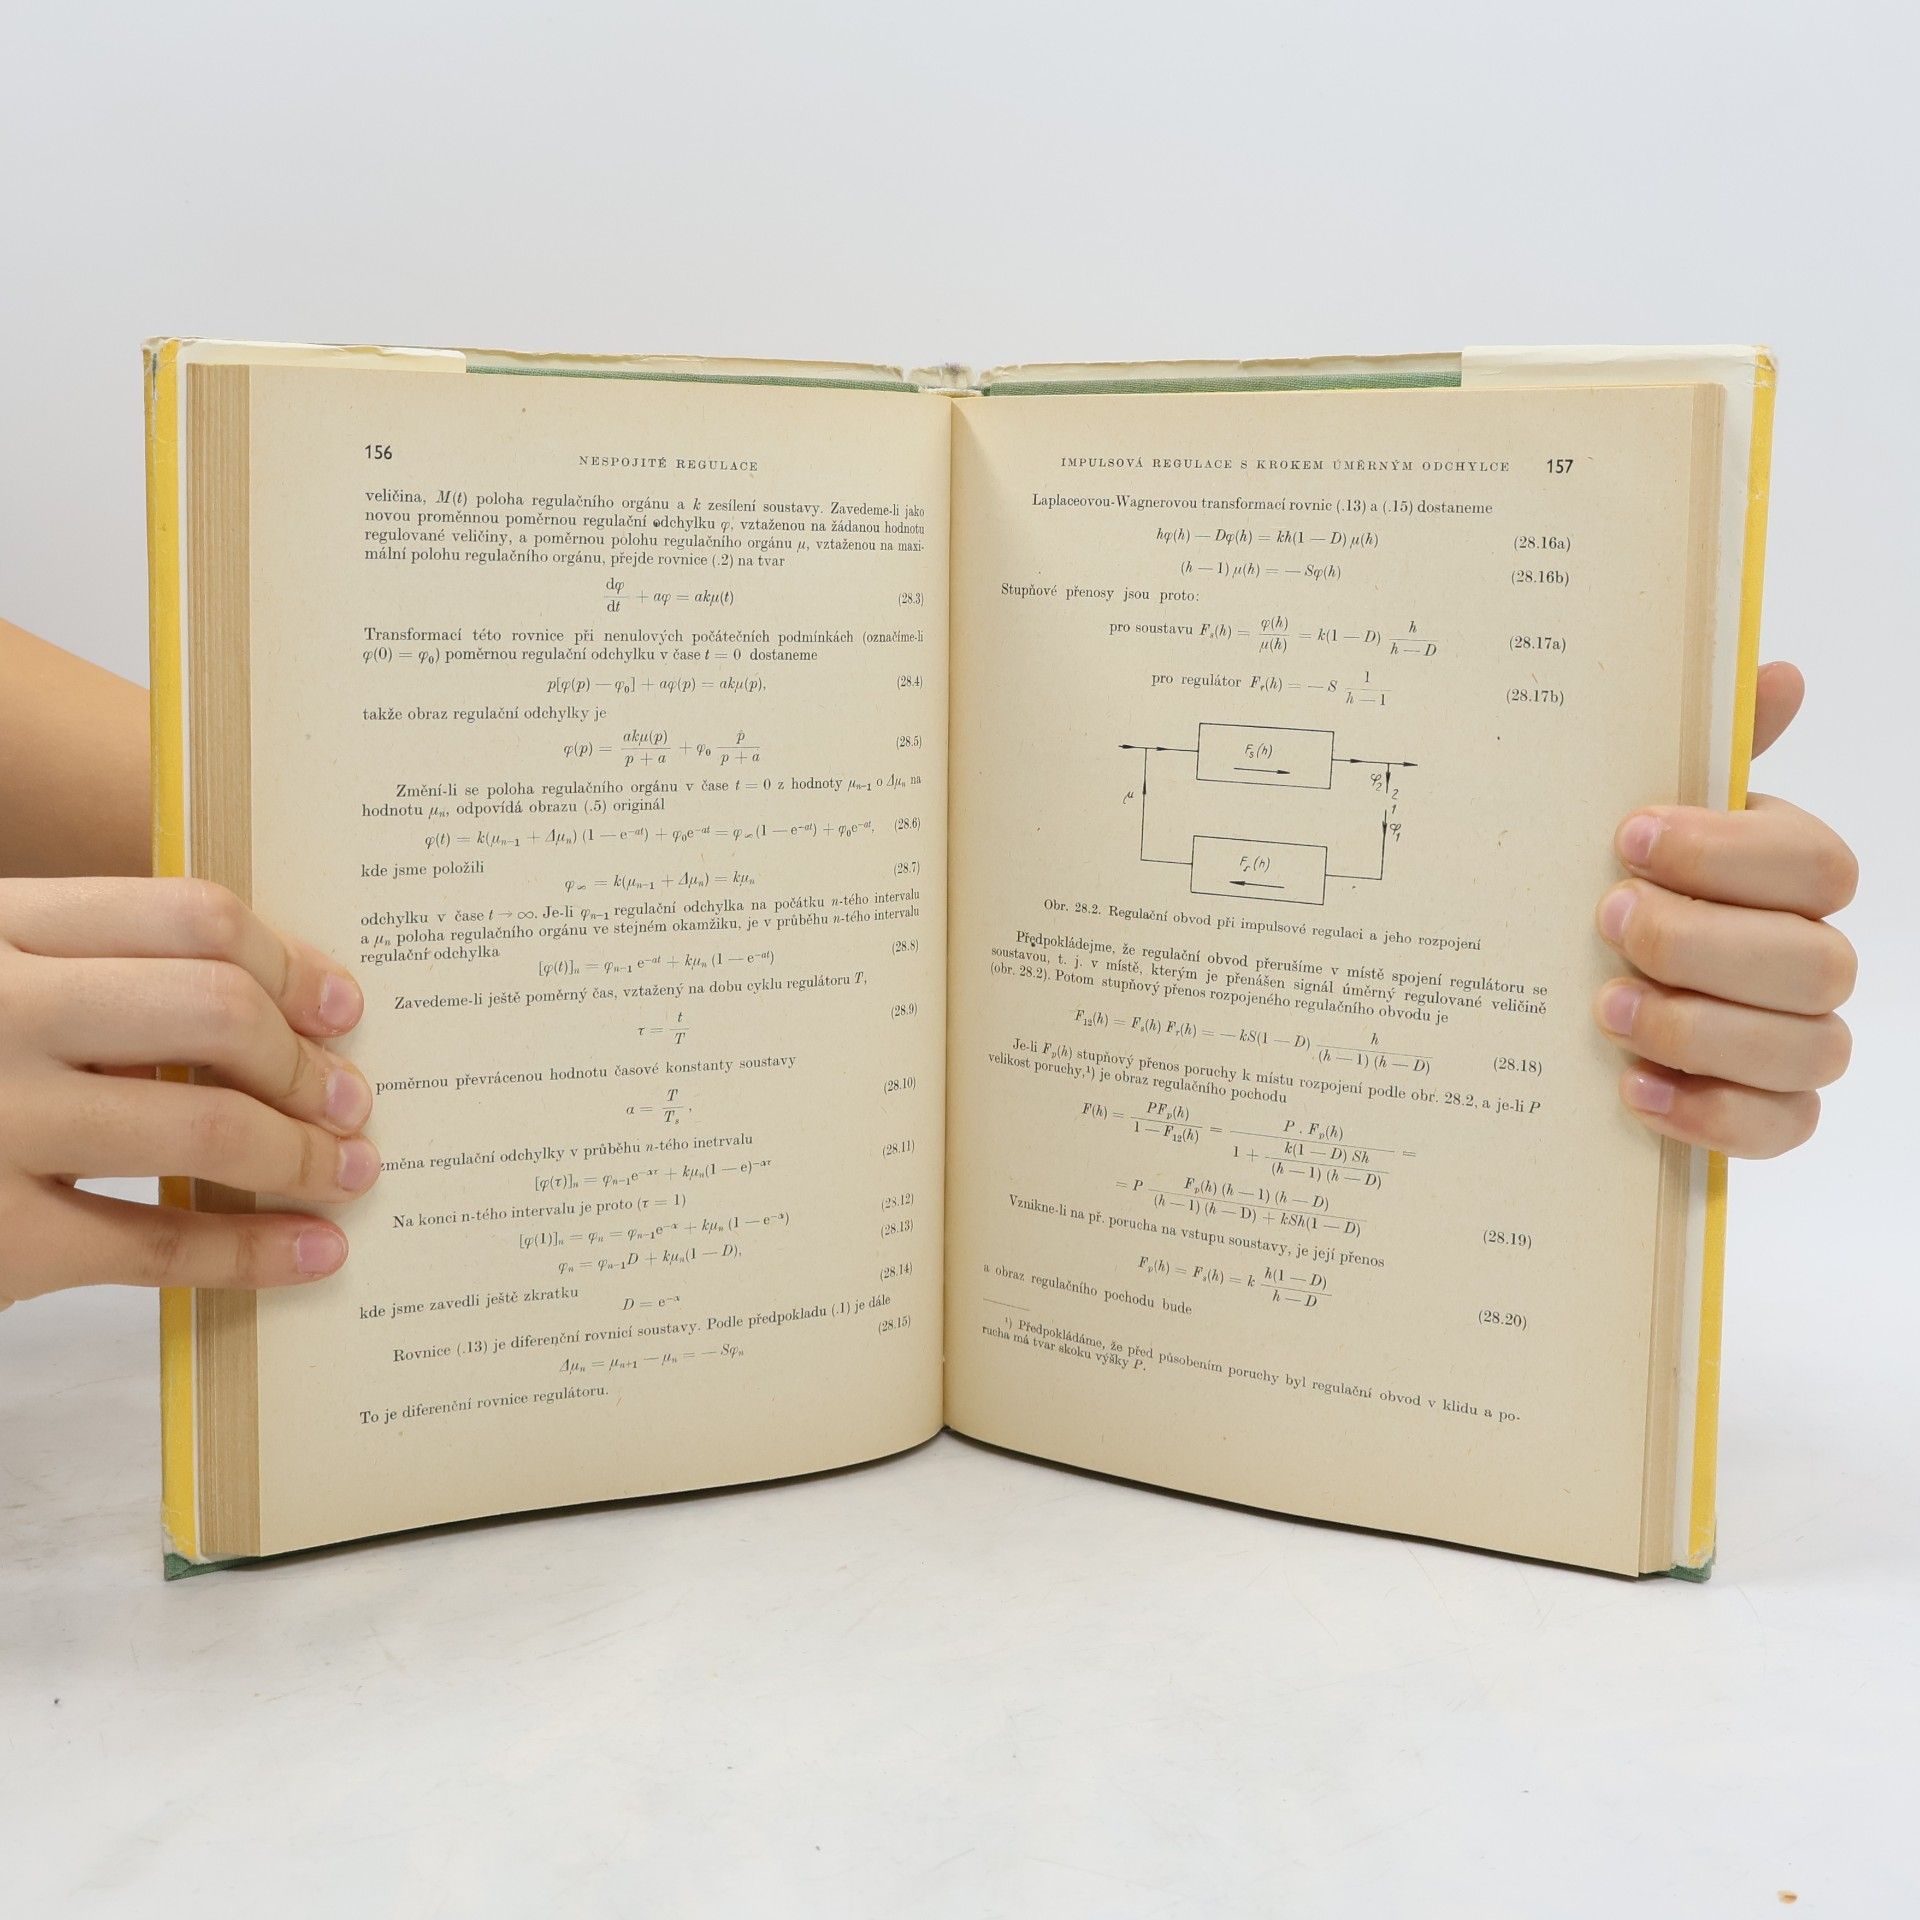 156
NESPOJITÉ REGULACE
veličina, M(t) poloha regulačního orgánu a k zesílení soustavy. Zavedeme-li jako
novou proměnnou poměrnou regulační odchylku φ, vztaženou na žádanou hodnotu
regulované veličiny, a poměrnou polohu regulačního orgánu μ, vztaženou na maxi-
mální polohu regulačního orgánu, přejde rovnice (.2) na tvar
dφ/dt + aφ = akμ(t) (28.3)
Transformací této rovnice při nenulových počátečních podmínkách (označíme-li
φ(0) = φ₀) poměrnou regulační odchylku v čase t = 0 dostaneme
p[φ(p) — φ₀] + aφ(p) = akμ(p), (28.4)
takže obraz regulační odchylky je
φ(p) = akμ(p)/(p + a) + φ₀ p/(p + a) (28.5)
Změní-li se poloha regulačního orgánu v čase t = 0 z hodnoty μₙ₋₁ o Δμₙ na
hodnotu μₙ, odpovídá obrazu (.5) originál
φ(t) = k(μₙ₋₁ + Δμₙ) (1 — e^(−at)) + φ₀e^(−at) = φ∞(1 — e^(−at)) + φ₀e^(−at), (28.6)
kde jsme položili (28.7)
φ∞ = k(μₙ₋₁ + Δμₙ) = kμₙ
odchylku v čase t → ∞. Je-li φₙ₋₁ regulační odchylka na počátku n-tého intervalu
a μₙ poloha regulačního orgánu ve stejném okamžiku, je v průběhu n-tého intervalu
regulační odchylka (28.8)
[φ(t)]ₙ = φₙ₋₁ e^(−at) + kμₙ (1 — e^(−at))
Zavedeme-li ještě poměrný čas, vztažený na dobu cyklu regulátoru T,
τ = t/T (28.9)
poměrnou převrácenou hodnotu časové konstanty soustavy
α = T/Tₛ, (28.10)
změna regulační odchylky v průběhu n-tého inetrvalu
[φ(τ)]ₙ = φₙ₋₁e^(−ατ) + kμₙ(1 — e)^(−ατ) (28.11)
Na konci n-tého intervalu je proto (τ = 1)
[φ(1)]ₙ = φₙ = φₙ₋₁e^(−α) + kμₙ (1 — e^(−α)) (28.12)
φₙ = φₙ₋₁D + kμₙ(1 — D), (28.13)
kde jsme zavedli ještě zkratku (28.14)
D = e^(−α)
Rovnice (.13) je diferenční rovnicí soustavy. Podle předpokladu (.1) je dále
Δμₙ = μₙ₊₁ — μₙ = — Sφₙ (28.15)
To je diferenční rovnice regulátoru.
IMPULSOVÁ REGULACE S KROKEM ÚMĚRNÝM ODCHYLCE 157
Laplaceovou-Wagnerovou transformací rovnic (.13) a (.15) dostaneme
hφ(h) — Dφ(h) = kh(1 — D) μ(h) (28.16a)
(h — 1) μ(h) = — Sφ(h) (28.16b)
Stupňové přenosy jsou proto:
pro soustavu Fₛ(h) = φ(h)/μ(h) = k(1 — D) h/(h — D) (28.17a)
pro regulátor Fᵣ(h) = — S 1/(h — 1) (28.17b)
Fₛ(h)
φ₂
2
μ
1
φ₁
Fᵣ(h)
Obr. 28.2. Regulační obvod při impulsové regulaci a jeho rozpojení
Předpokládejme, že regulační obvod přerušíme v místě spojení regulátoru se
soustavou, t. j. v místě, kterým je přenášen signál úměrný regulované veličině
(obr. 28.2). Potom stupňový přenos rozpojeného regulačního obvodu je
F₁₂(h) = Fₛ(h) Fᵣ(h) = — kS(1 — D) h/((h — 1) (h — D)) (28.18)
Je-li Fₚ(h) stupňový přenos poruchy k místu rozpojení podle obr. 28.2, a je-li P
velikost poruchy,¹) je obraz regulačního pochodu
F(h) = PFₚ(h)/(1 — F₁₂(h)) = P . Fₚ(h)/(1 + k(1 — D) Sh/((h — 1) (h — D))) =
= P Fₚ(h) (h — 1) (h — D)/((h — 1) (h — D) + kSh(1 — D)) (28.19)
Vznikne-li na př. porucha na vstupu soustavy, je její přenos
Fₚ(h) = Fₛ(h) = k h(1 — D)/(h — D) (28.20)
a obraz regulačního pochodu bude
¹) Předpokládáme, že před působením poruchy byl regulační obvod v klidu a po-
rucha má tvar skoku výšky P.